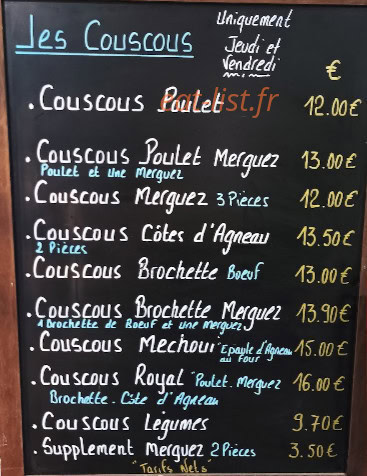 Les Couscous
Uniquement
Jeudi et
Vendredi
€
. Couscous Poulet 12.00€
eat-list.fr
. Couscous Poulet Merguez 13.00€
Poulet et une Merguez
. Couscous Merguez 3 Pièces 12.00€
. Couscous Côtes d'Agneau 13.50€
2 Pièces
. Couscous Brochette Boeuf 13.00€
. Couscous Brochette Merguez 13.90€
1 Brochette de Boeuf et une Merguez
. Couscous Mechoui "Epaule d'Agneau 15.00€
au Four
. Couscous Royal "Poulet. Merguez 16.00€
Brochette. Côte d'Agneau
. Couscous Légumes 9.70€
. Supplement Merguez 2 Pièces 3.50€
"Tarifs Nets"